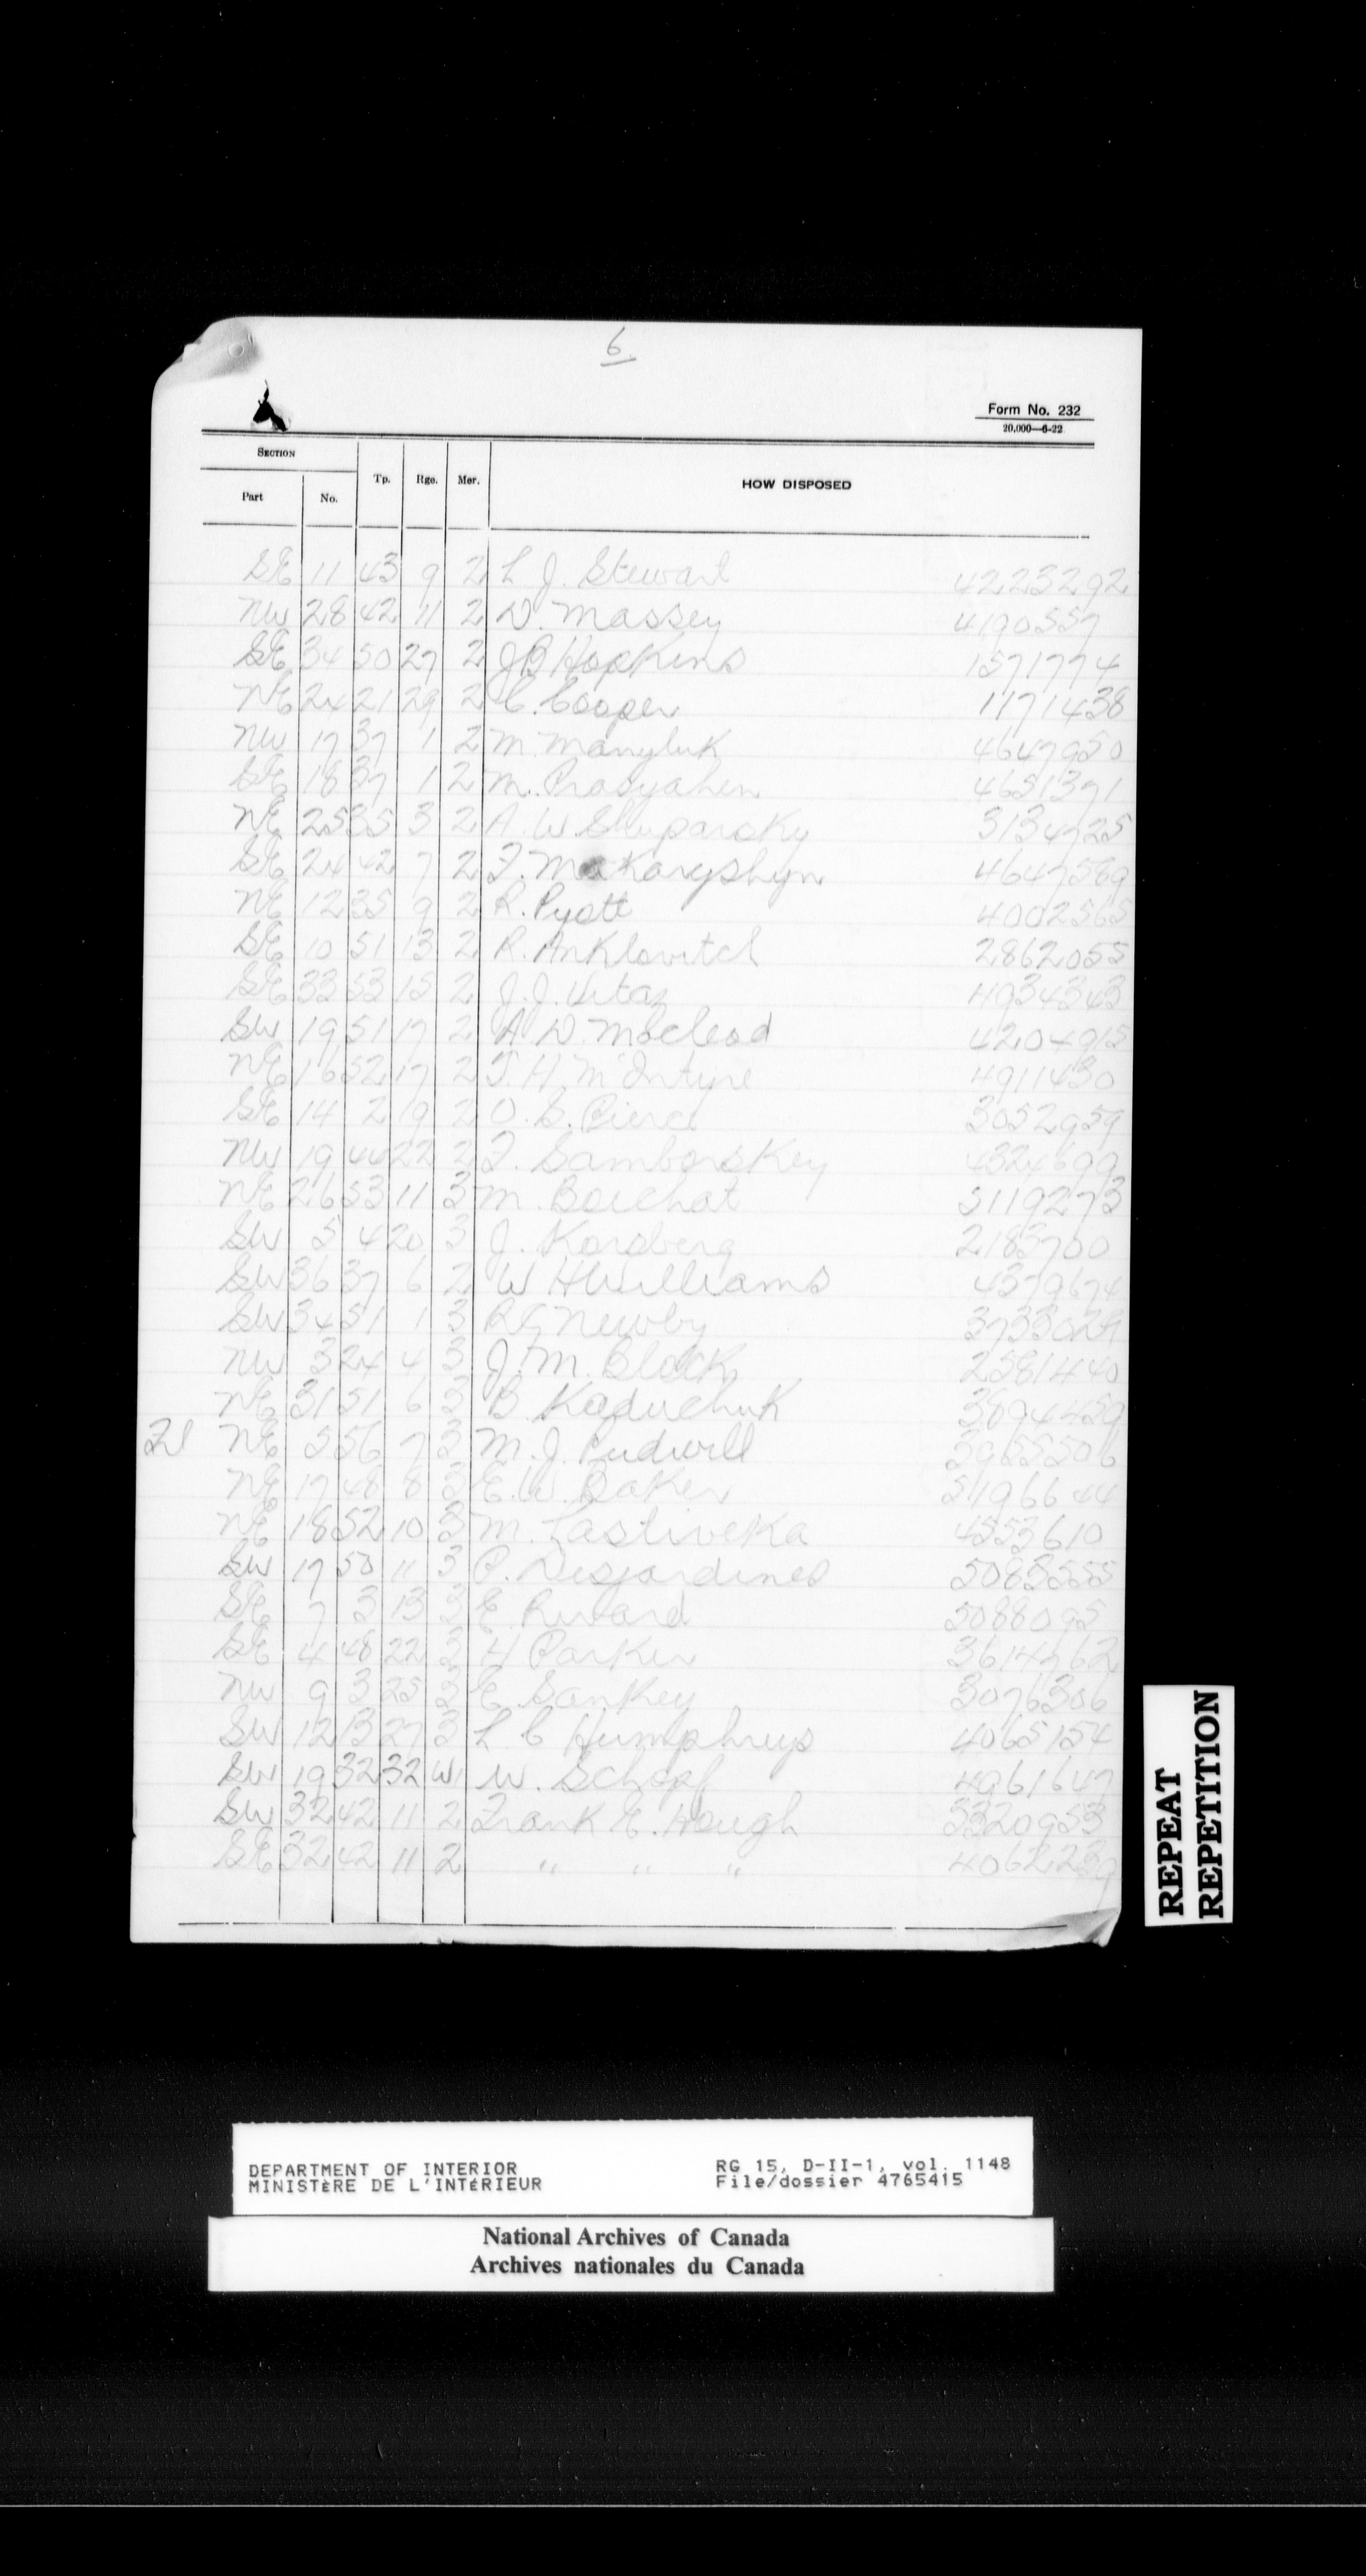 6.
Form No. 232
20,000—6-22
SECTION Tp. Rge. Mer. HOW DISPOSED
Part No.
SE 11 43 9 2 L J. Stewart 4223292
NW 28 42 11 2 D. Massey 4190557
SE 34 50 27 2 J B Hopkins 1571774
NE 24 21 29 2 C. Cooper 1171438
NW 17 37 1 2 M. Manyluk 4647950
SE 18 37 1 2 M. 4651371
NE 25 35 3 2 A. W. Sluparsky 3134725
SE 24 42 7 2 F. Makaryshyn 4647589
NE 12 35 9 2 R. Pyott 4002565
SE 10 51 13 2 R. Anklovitch 2862055
SE 33 53 15 2 J. J. 4934343
SW 19 51 17 2 A D. Macleod 4204915
NE 16 52 17 2 J. H. McIntyre 4911430
SE 14 2 19 2 O. S. Pierce 3052959
NW 19 44 22 2 F. Samborskey 4324699
NE 26 53 11 3 M. Bouchat 5119273
SW 5 4 20 3 J. Korsberg 2183700
SW 36 37 6 2 W H Williams 4379674
SW 34 51 1 3 Newby
NW 3 24 4 3 J. M. Block 2581440
NE 31 51 6 3 B. Kaduchuk 3894459
NE 5 56 7 3 M. J. Pudwill 3955506
NE 17 48 8 3 E. W. Baker
NE 18 52 10 3 M. Lastiveka 4553610
SW 17 50 11 3 P. Desjardines 5083555
SE 7 3 13 3 E. Rivard 5088095
SE 4 48 22 3 H Parker 3614562
NW 9 3 25 3 E. Sankey 3076306
SW 12 13 27 3 L C Humphrys 4065154
SW 19 32 32 W1 W. Schopf 4961647
SW 32 42 11 2 Frank E. Hough 3320953
SE 32 42 11 2 " " " 4062239
REPEAT
REPETITION
DEPARTMENT OF INTERIOR RG 15, D-II-1, vol. 1148
MINISTèRE DE L'INTéRIEUR File/dossier 4765415
National Archives of Canada
Archives nationales du Canada